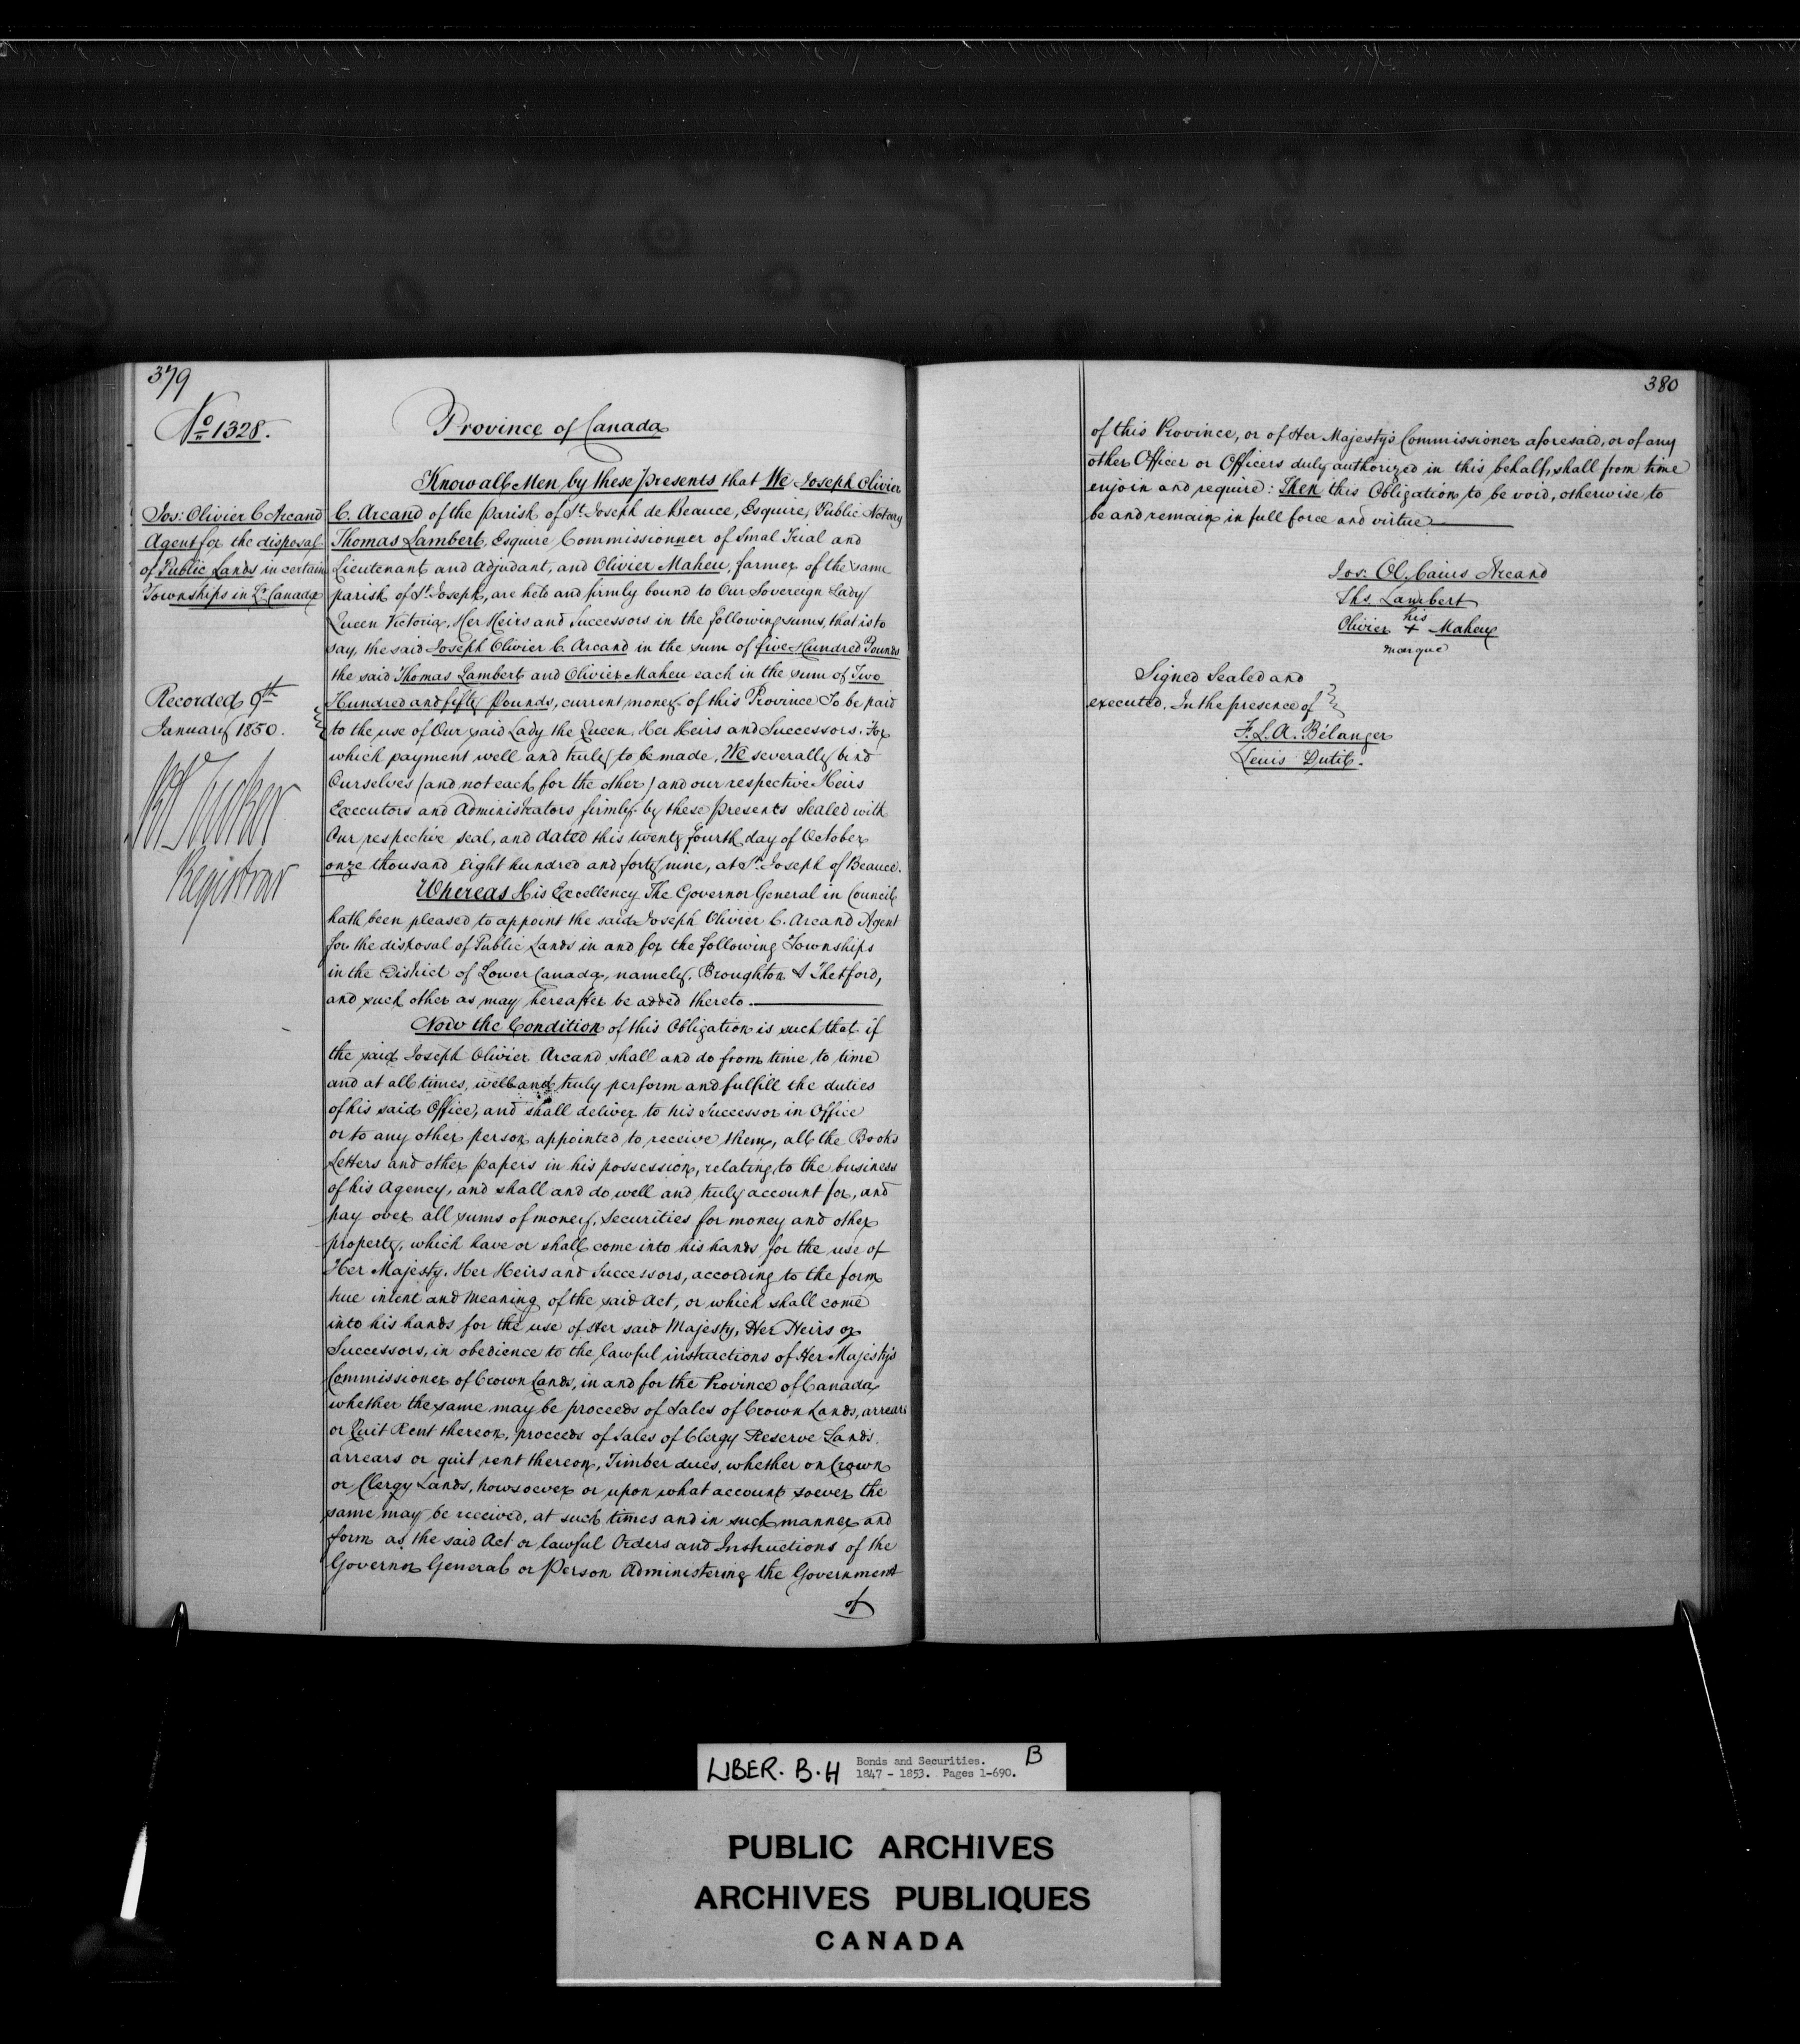 379
No 1328.
Province of Canada
Know all Men by these presents that We Joseph Olivier
Jos: Olivier C Arcand
Agent for the disposal
of Public Lands in certain
Townships in Lr Canada
C. Arcand of the parish of St. Joseph de Beauce, Esquire, Public Notary
Thomas Lambert, Esquire Commissionner of Smal Trial and
Lieutenant and Adjudant, and Olivier Maheu, farmer of the same
parish of St. Joseph, are held and firmly bound to Our Sovereign Lady
Queen Victoria, Her Heirs and Successors in the following sums, that is to
say, the said Joseph Olivier C. Arcand in the sum of five Hundred Pounds
the said Thomas Lambert and Olivier Maheu each in the sum of Two
Hundred and fifty Pounds, current money of this Province To be paid
to the use of Our said Lady the Queen, Her Heirs and Successors. For
which payment well and truly to be made, We severally bind
Ourselves (and not each for the other) and our respective Heirs
Executors and Administrators firmly by these presents Sealed with
Our respective seal, and dated this twenty fourth day of October
onze thousand Eight hundred and forty nine, at St. Joseph of Beauce.
Recorded 9th
January 1850.
Tucker
Registrar
Whereas His Excellency The Governor General in Council
hath been pleased to appoint the said Joseph Olivier C. Arcand Agent
for the disposal of Public Lands in and for the following Townships
in the District of Lower Canada, namely, Broughton & Thetford,
and such other as may hereafter be added thereto.
Now the Condition of this Obligation is such that if
the said Joseph Olivier Arcand shall and do from time to time
and at all times, well and truly perform and fulfill the duties
of his said Office, and shall deliver to his Successor in Office
or to any other person appointed to receive them, all the Books
Letters and other papers in his possession, relating to the business
of his Agency, and shall and do well and truly account for, and
pay over all sums of money, Securities for money and other
property, which have or shall come into his hands for the use of
Her Majesty, Her Heirs and Successors, according to the form
true intent and meaning of the said Act, or which shall come
into his hands for the use of Her said Majesty, Her Heirs or
Successors, in obedience to the lawful instructions of Her Majesty's
Commissioner of Crown Lands, in and for the Province of Canada
whether the same may be proceeds of Sales of Crown Lands, arrears
or Quit Rent thereon, proceeds of Sales of Clergy Reserve Lands
arrears or quit rent thereon, Timber dues, whether on Crown
or Clergy Lands, howsoever or upon what account soever the
same may be received, at such times and in such manner and
form as the said Act or lawful Orders and Instructions of the
Governor General or Person Administering the Government
of
380
of this Province, or of Her Majesty's Commissioner aforesaid, or of any
other Officer or Officers duly authorized in this behalf, shall from time
enjoin and require: Then this Obligation to be void, otherwise to
be and remain in full force and virtue
Jos: Ol. Caius Arcand
Ths. Lambert
his
Olivier + Maheu
marque
Signed Sealed and
executed. In the presence of
F. L. A. Bélanger
Louis Dutil.
LIBER. B.H
Bonds and Securities.
1847 - 1853. Pages 1-690.
B
PUBLIC ARCHIVES
ARCHIVES PUBLIQUES
CANADA